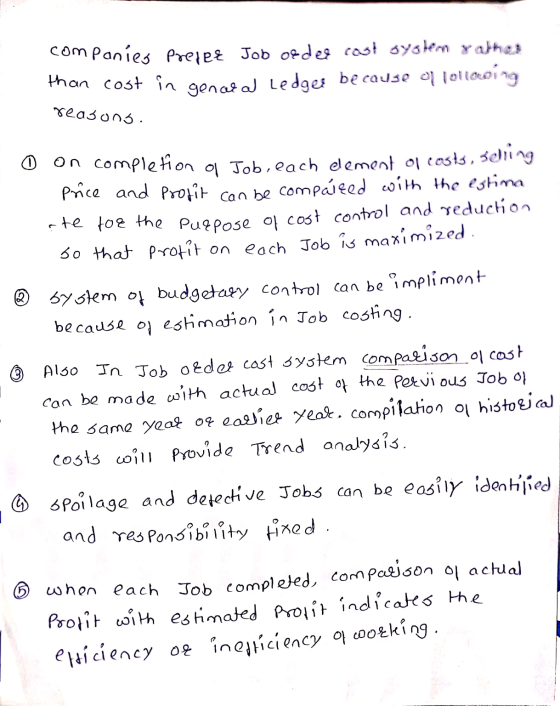 companies prefer Job order cost system rather
than cost in genaral Ledger because of following
reasons.
① on completion of Job, each element of costs, selling
price and profit can be compaired with the estima
-te for the purpose of cost control and reduction
so that profit on each Job is maximized.
② system of budgetary control can be impliment
because of estimation in Job costing.
③ Also In Job order cost system comparison of cost
can be made with actual cost of the pervious Job of
the same year or earlier year. compilation of historical
costs will provide Trend analysis.
④ spoilage and defective Jobs can be easily identified
and responsibility fixed.
⑤ when each Job completed, comparison of actual
Profit with estimated profit indicates the
efficiency or inefficiency of working.